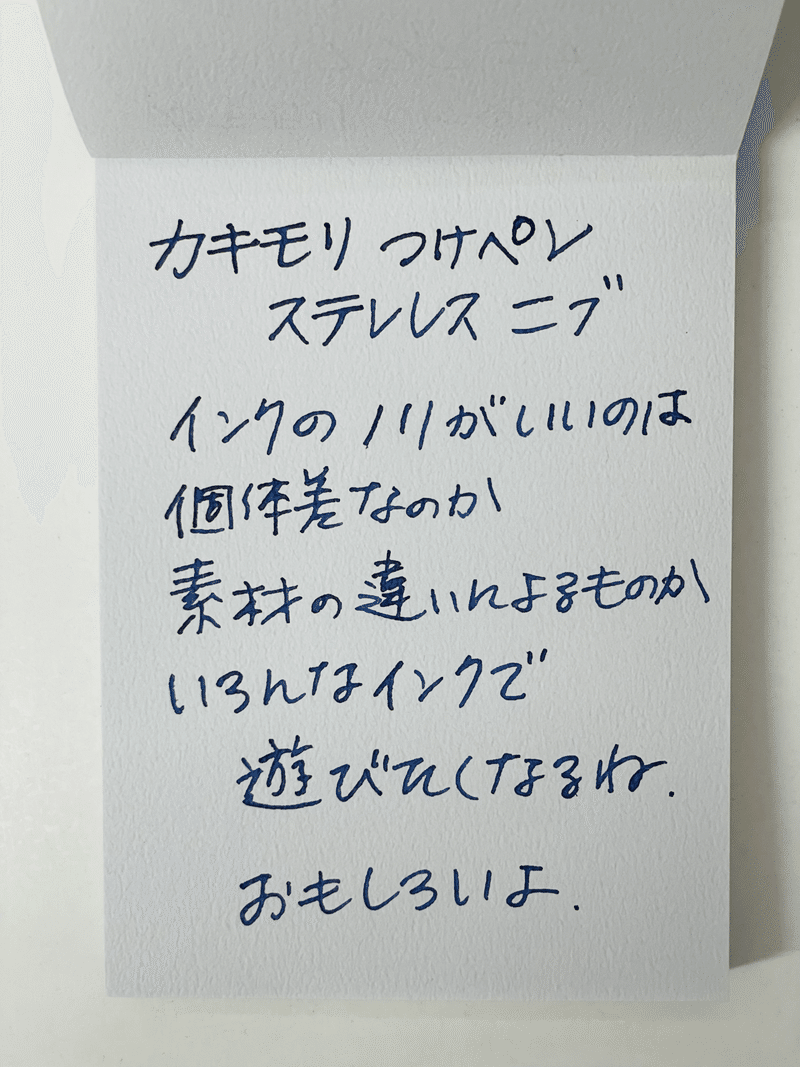 カキモリ つけペン
ステレレス ニブ
インクの ノリがいいのは
個体差なのか
素材の違いによるものか
いろんなインクで
遊びたくなるね.
おもしろいよ.